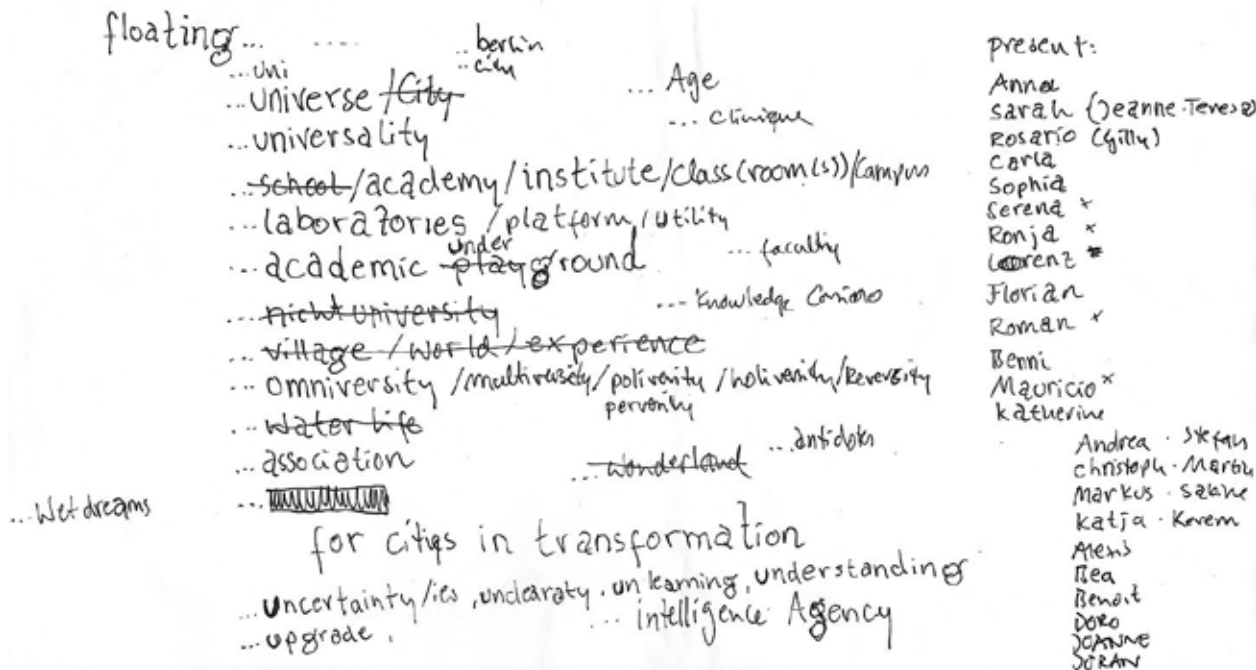 floating... .... ...berlin
...uni ...city
...universe /City
...Age
...universality
...clinique
...school/academy/institute/class(room(s))/campus
...laboratories /platform/utility
under
...academic playground
...faculty
...nicht university
...Knowledge
...village /world/experience
...omniversity /multiversity/poliversity /holiversity/Reversity
perversity
...water life
...association
...wonderland
...Wet dreams
for cities in transformation
...uncertainty/ies, unclearaty, unlearning, understanding
...upgrade,
...intelligence Agency
present:
Anna
Sarah (Jeanne-Teresa)
Rosario (Gilly)
Carla
Sophia
Serena x
Ronja x
Lorenz x
Florian
Roman x
Benni
Mauricio x
Katherine
Andrea · Stefan
Christoph · Martin
Markus · Sabine
Katja · Kerem
Alexis
Bea
Benoit
DORO
JOANNE
JÖRAN